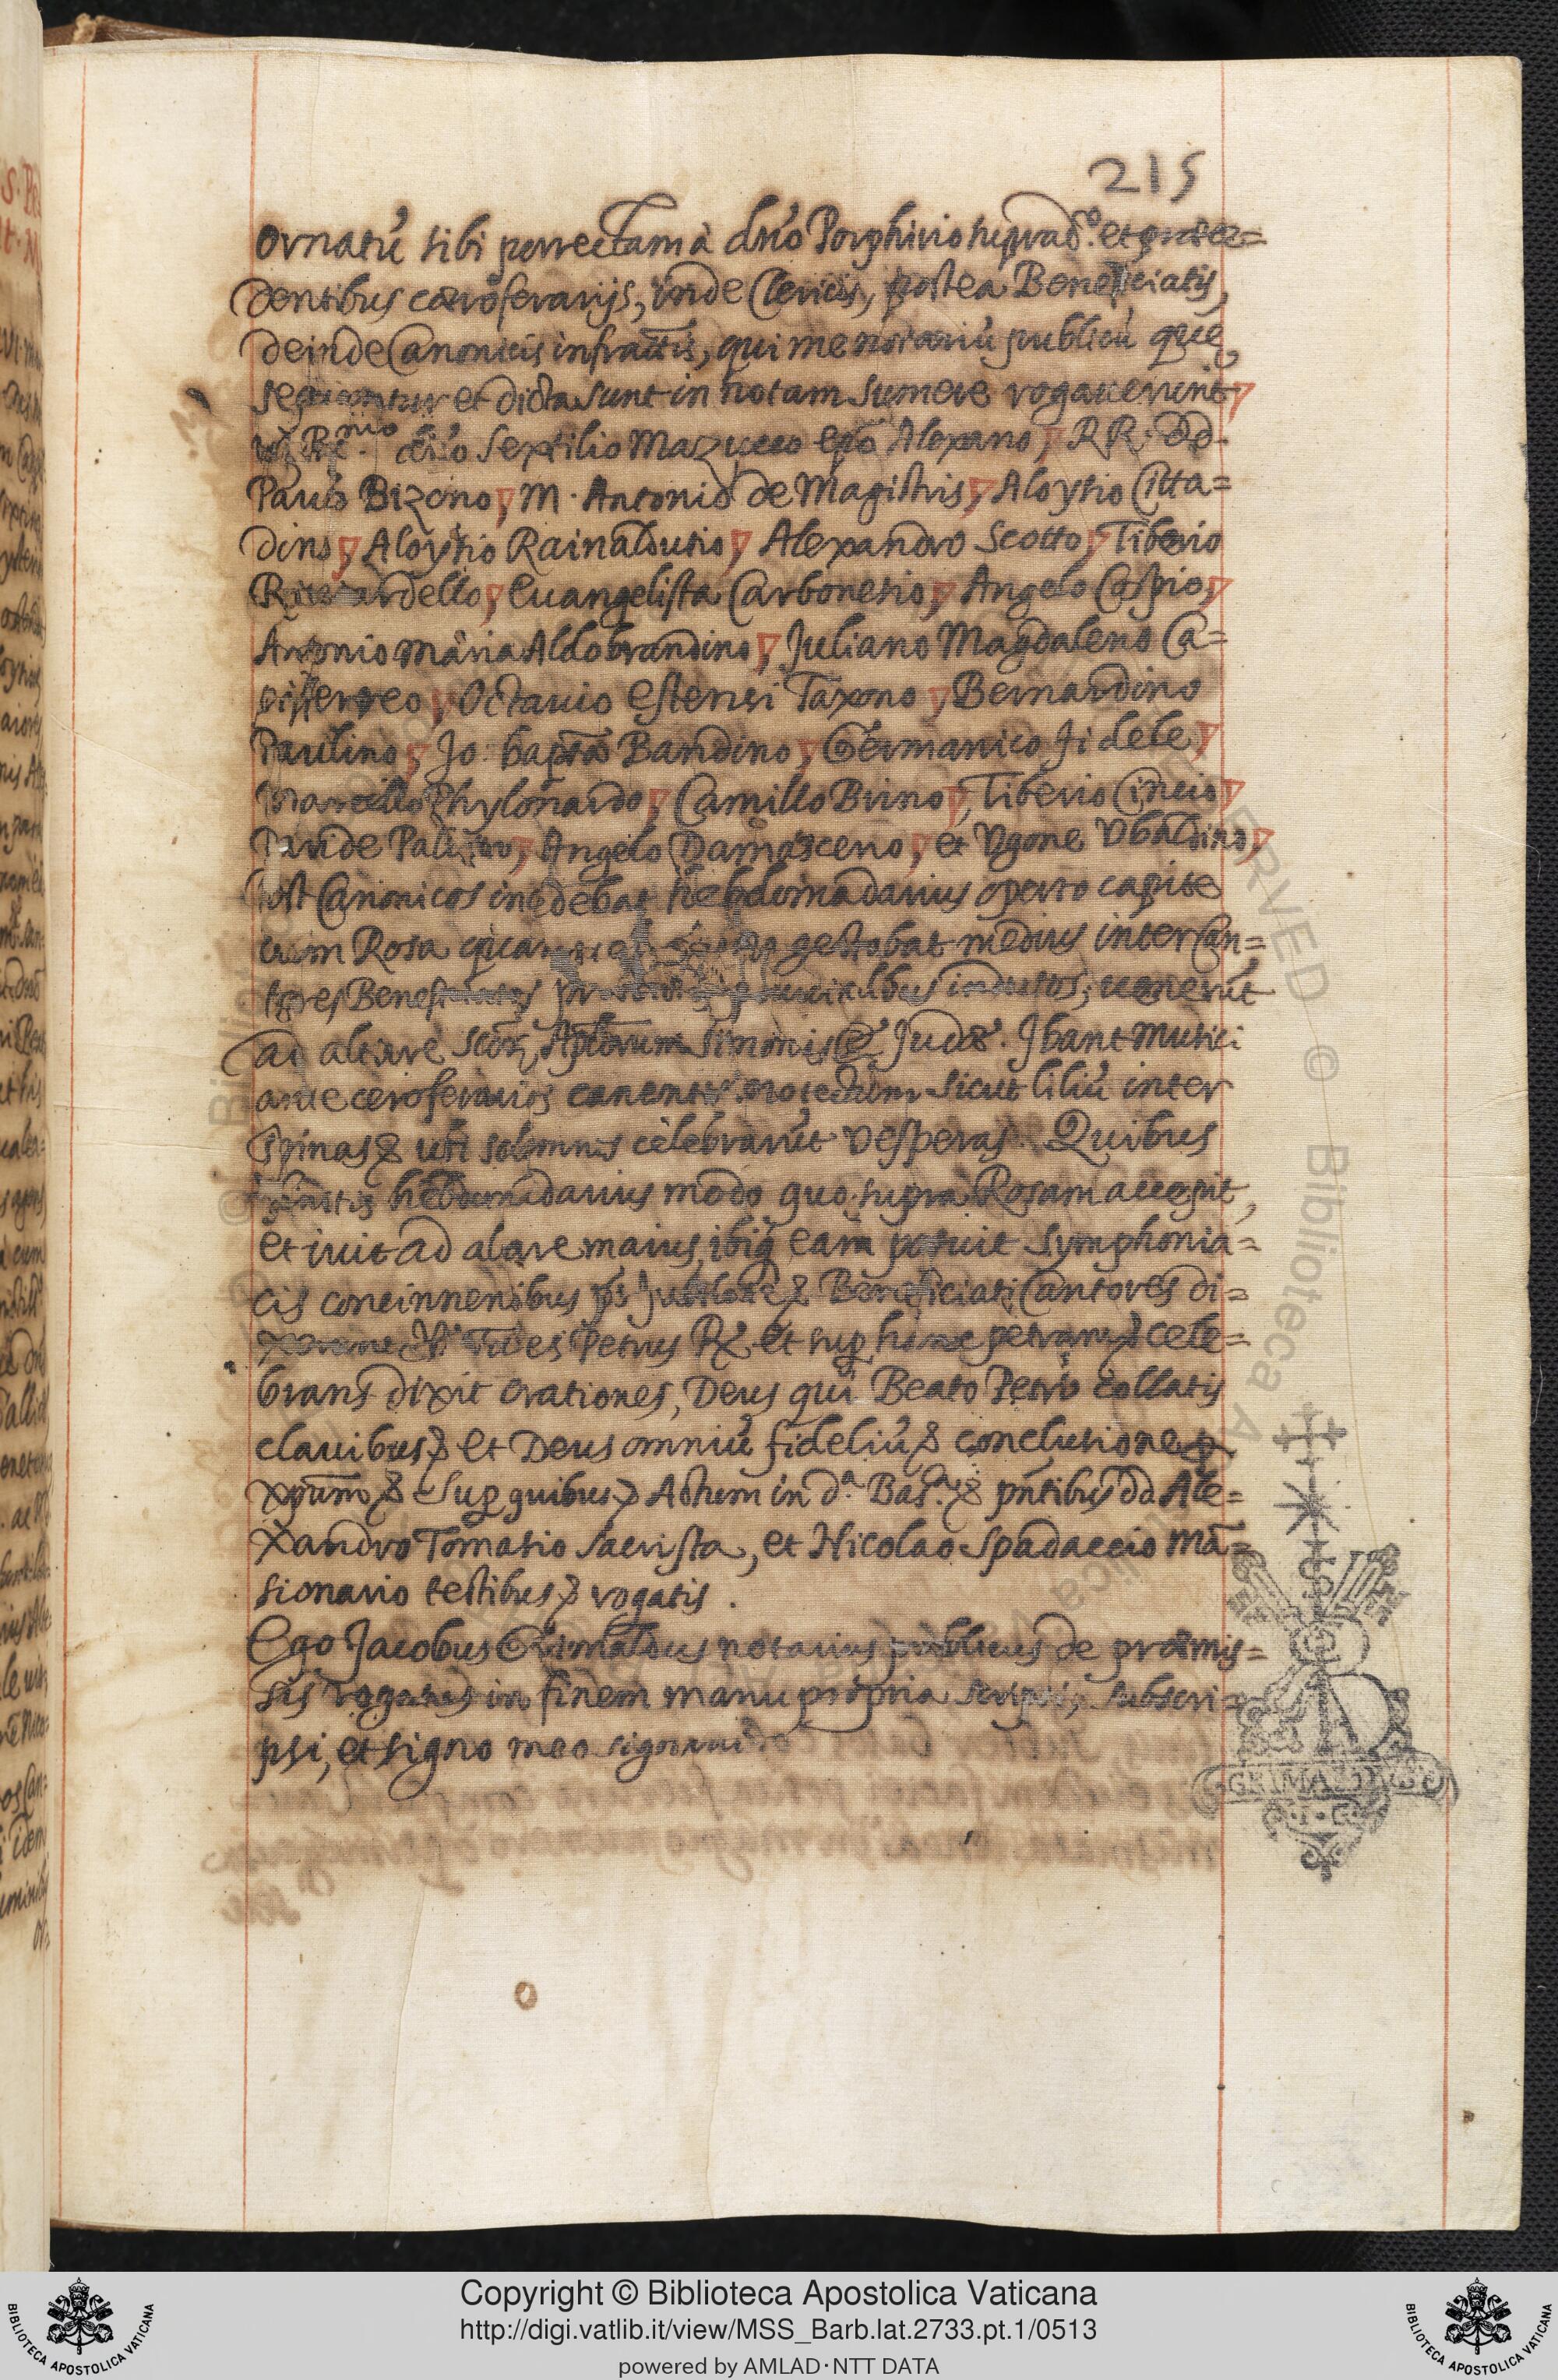 215
ornatū sibi porrectam à dño Porphirio suprad.º et præce=
dentibus cæroferarijs, inde Clericis, postea Beneficiatis,
deinde Canonicis infrattis, qui me notariū publicū que
sequuntur et dicta sunt in notam sumere rogauerunt
R.mo dño Sextilio Mazucco epō Alexano, RR. dd.
Paulo Bizono, M. Antonio de Magistris, Aloysio Citta=
dino, Aloysio Rainaldutio, Alexandro Scotto, Tiberio
Ricciardello, Euangelista Carbonesio, Angelo Cospio,
Antonio maria Aldobrandino, Juliano Magdaleno Ca=
piferreo, Octauio estensi Taxono, Bernardino
Paulino, Jo. baptā Bandino, Germanico Fidele,
Marcello Phylonardo, Camillo Brino, Tiberio Cincio,
Paride Angelo Damasceno, et Vgone Vbaldino,
Post Canonicos incedebat hebdomadarius operto capite
cum Rosa gestabat medius inter Can=
tores induitos, uenerūt
ad altare Scōr, Aplōrum Simonis & Judæ. Jbant Musici
ante ceroferarios canentes motectum Sicut liliū inter
spinas & ubi solemnes celebrarūt Vesperas. Quibus
finitis hebdomadarius modo quo supra Rosam accepit,
et iuit ad altare maius, ibiq eam posuit Symphonia=
cis concinnentibus ps Jubilate & Beneficiati Cantores di=
xerunt V. Tu es Petrus R. et sup hanc petram & cele=
brans dixit orationes, Deus qui Beato Petro collatis
clauibus & et Deus omniū fideliū & conclusione p
xpūm & Sup quibus & Actum in d.a Bas.ca & pñtibus dd Ale=
xandro Tomasio Sacrista, et Nicolao Spadaccio mā=
sionario testibus & rogatis.
Ego Jacobus Grimaldus notarius publicus de præmis=
sis rogatus in finem manu propria scripsi, subscri=
psi, et signo meo signaui
GRIMALD
I · G
Copyright © Biblioteca Apostolica Vaticana
http://digi.vatlib.it/view/MSS_Barb.lat.2733.pt.1/0513
powered by AMLAD·NTT DATA
BIBLIOTECA APOSTOLICA VATICANA
BIBLIOTECA APOSTOLICA VATICANA